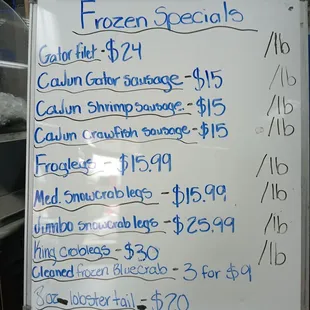 Frozen Specials
Gator filet - $24 /lb
Cajun Gator sausage - $15 /lb
Cajun Shrimp sausage - $15 /lb
Cajun Crawfish sausage - $15 /lb
Froglegs - $15.99 /lb
Med. Snowcrab legs - $15.99 /lb
Jumbo snowcrab legs - $25.99 /lb
King crablegs - $30 /lb
Cleaned frozen Bluecrab - 3 for $9
8oz lobster tail - $20